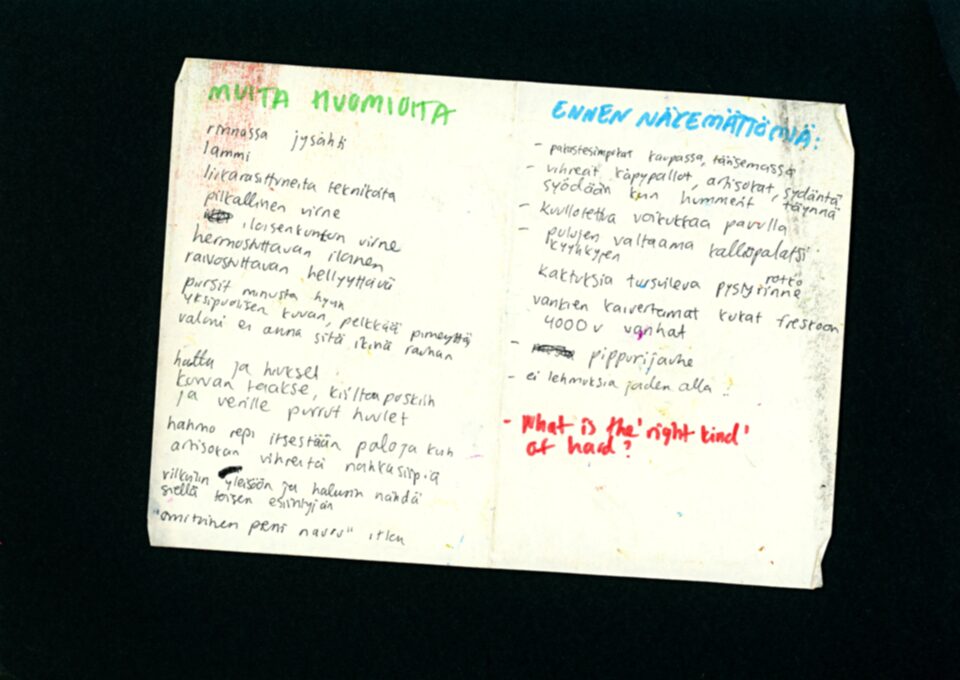 MUITA HUOMIOITA
rinnassa jysähti
lammi
pilkallinen virne
iloisenkurton virne
hermostuttavan iloinen
raivostuttavan hellyyttävä
pursit minusta hyvn
yksipuolisen kuvan, pelkkää pimeyttä
valoni ei anna sitä ikinä rauhan
hattu ja hiukset
korvan taakse, kisiltaa poskiin
ja verille purrut huulet
hahmo repi itsestään paloja kuin
artisokan vihreitä nahkasiipiä
vilkuilin yleisöön ja halusin nähdä
siellä toisen esiintyjän
"omituinen pieni nauru" itku
ENNEN NÄKEMÄTTÖMIÄ:
- kaupassa, tärisemässä
- vihreät käpypallot, artisokat, sydäntä
syödään kun hummerit täynnä
- kuullotettua voikukkaa pavulla
- pulujen valtaama kalliopalatsi
kyyhkyjen
rotko
kaktuksia tursuileva pystyrinne
vankien kaivertamat kukat freskoon
4000 v vanhat
- pippurijauhe
- ei lehmuksia joiden alla !
- What is the 'right kind'
of hard?